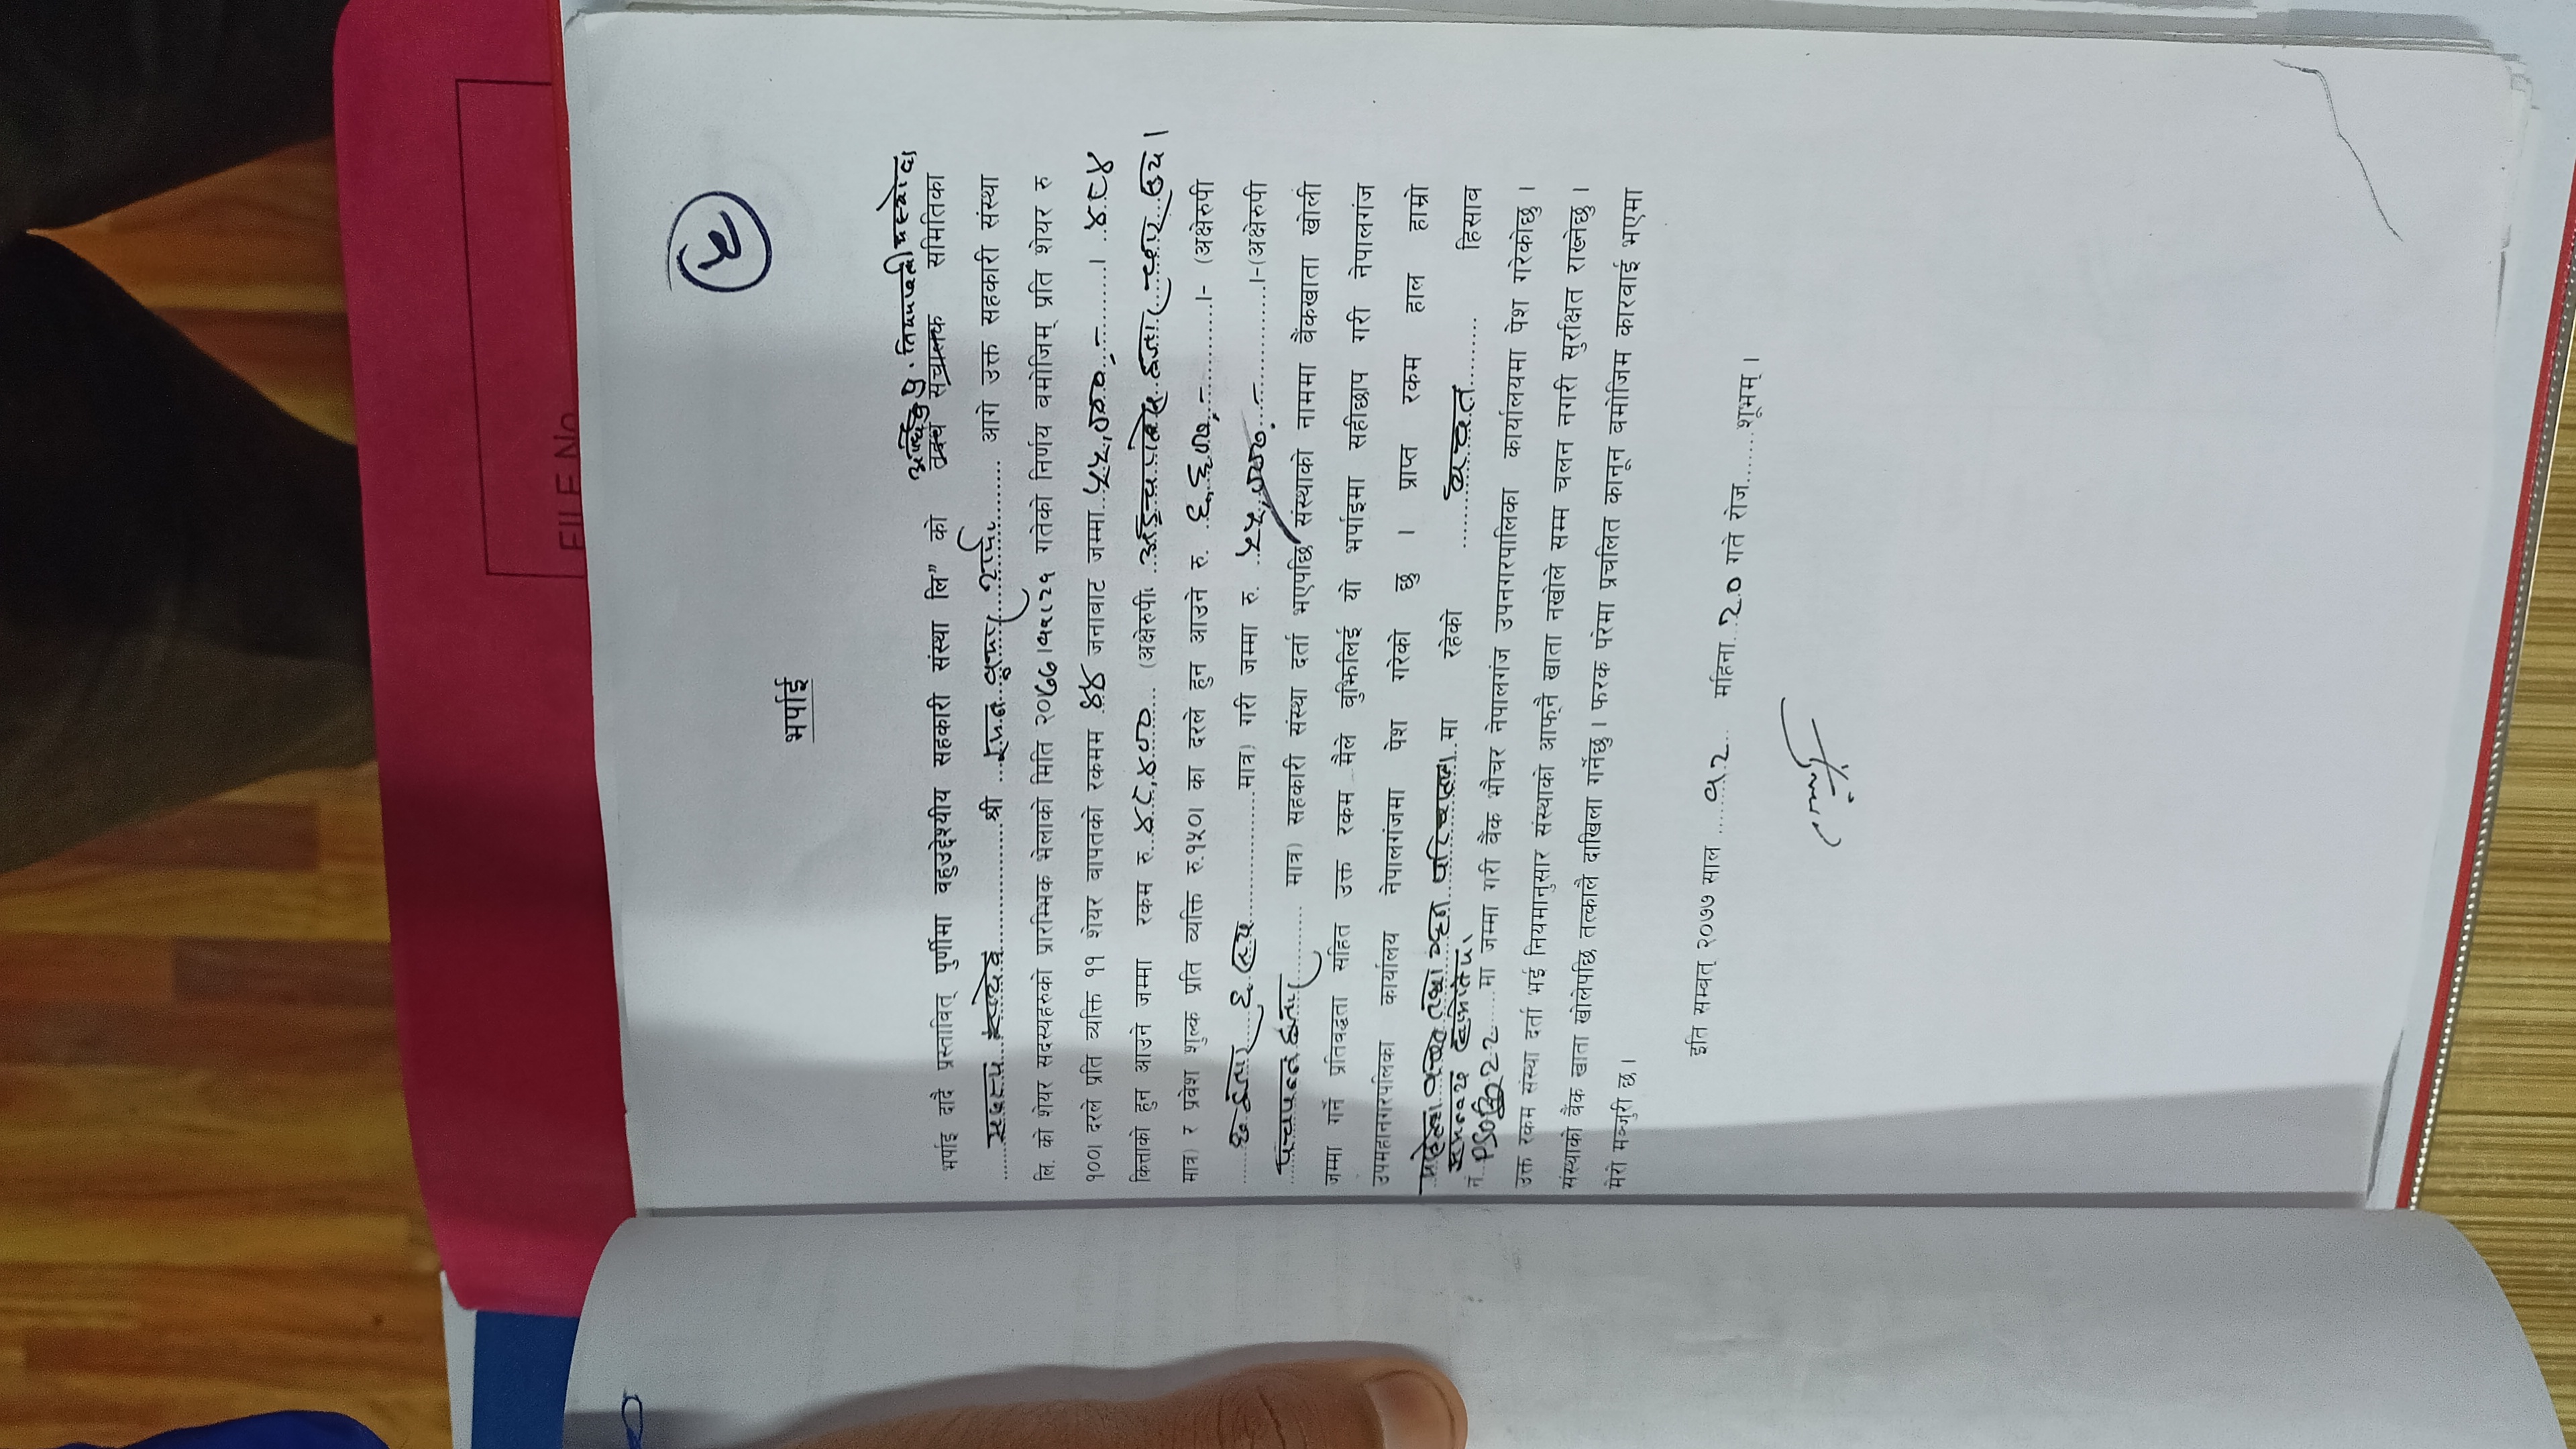 FILE No
५
भर्पाई
भर्पाइ दादै प्रस्तावित् पुर्णीमा वहुउद्देश्यीय सहकारी संस्था लि” को तदर्थ संचालक समितिका
सदस्य श्री रमन कुमार शर्मा आगे उक्त सहकारी संस्था
लि. को शेयर सदस्यहरुको प्रारम्भिक भेलाको मिति २०७७।११।२१ गतेको निर्णय वमोजिम् प्रति शेयर रु
१००। दरले प्रति व्यक्ति ११ शेयर वापतको रकमम ४४ जनावाट जम्मा ५५,०००.– । ४८४
कित्ताको हुन आउने जम्मा रकम रु ४८,४०० (अक्षेरुपी। अड्चालिस हजार चार सय।
मात्र) र प्रवेश शुल्क प्रति व्यक्ति रु.१५०। का दरले हुन आउने रु. ६,६००.– ।- (अक्षेरुपी
छ हजार ६ सय मात्र) गरी जम्मा रु. ५५,०००.– ।-(अक्षेरुपी
पचपन्न हजार मात्र) सहकारी संस्था दर्ता भएपछि संस्थाको नाममा वैंकखाता खोली
जम्मा गर्ने प्रतिवद्धता सहित उक्त रकम मैले वुझिलिई यो भर्पाइमा सहीछाप गरी नेपालगंज
उपमहानगरपलिका कार्यालय नेपालगंजमा पेश गरेको छु । प्राप्त रकम हाल हाम्रो
महिला वचत तथा ऋण परिचालन मा रहेको वचत हिसाव
समन्वय समितिमा
नं. मा जम्मा गरी वैंक भौचर नेपालगंज उपनगरपालिका कार्यालयमा पेश गरेकोछु ।
उक्त रकम संस्था दर्ता भई नियमानुसार संस्थाको आफ्नै खाता नखोले सम्म चलन नगरी सुरक्षित राख्नेछु ।
संस्थाको वैंक खाता खोलेपछि तत्कालै दाखिला गर्नेछु । फरक परेमा प्रचलित कानून वमोजिम कारवाई भएमा
मेरो मञ्जुरी छ ।
इति सम्वत् २०७७ साल १२ महिना २० गते रोज.......शूभम् ।